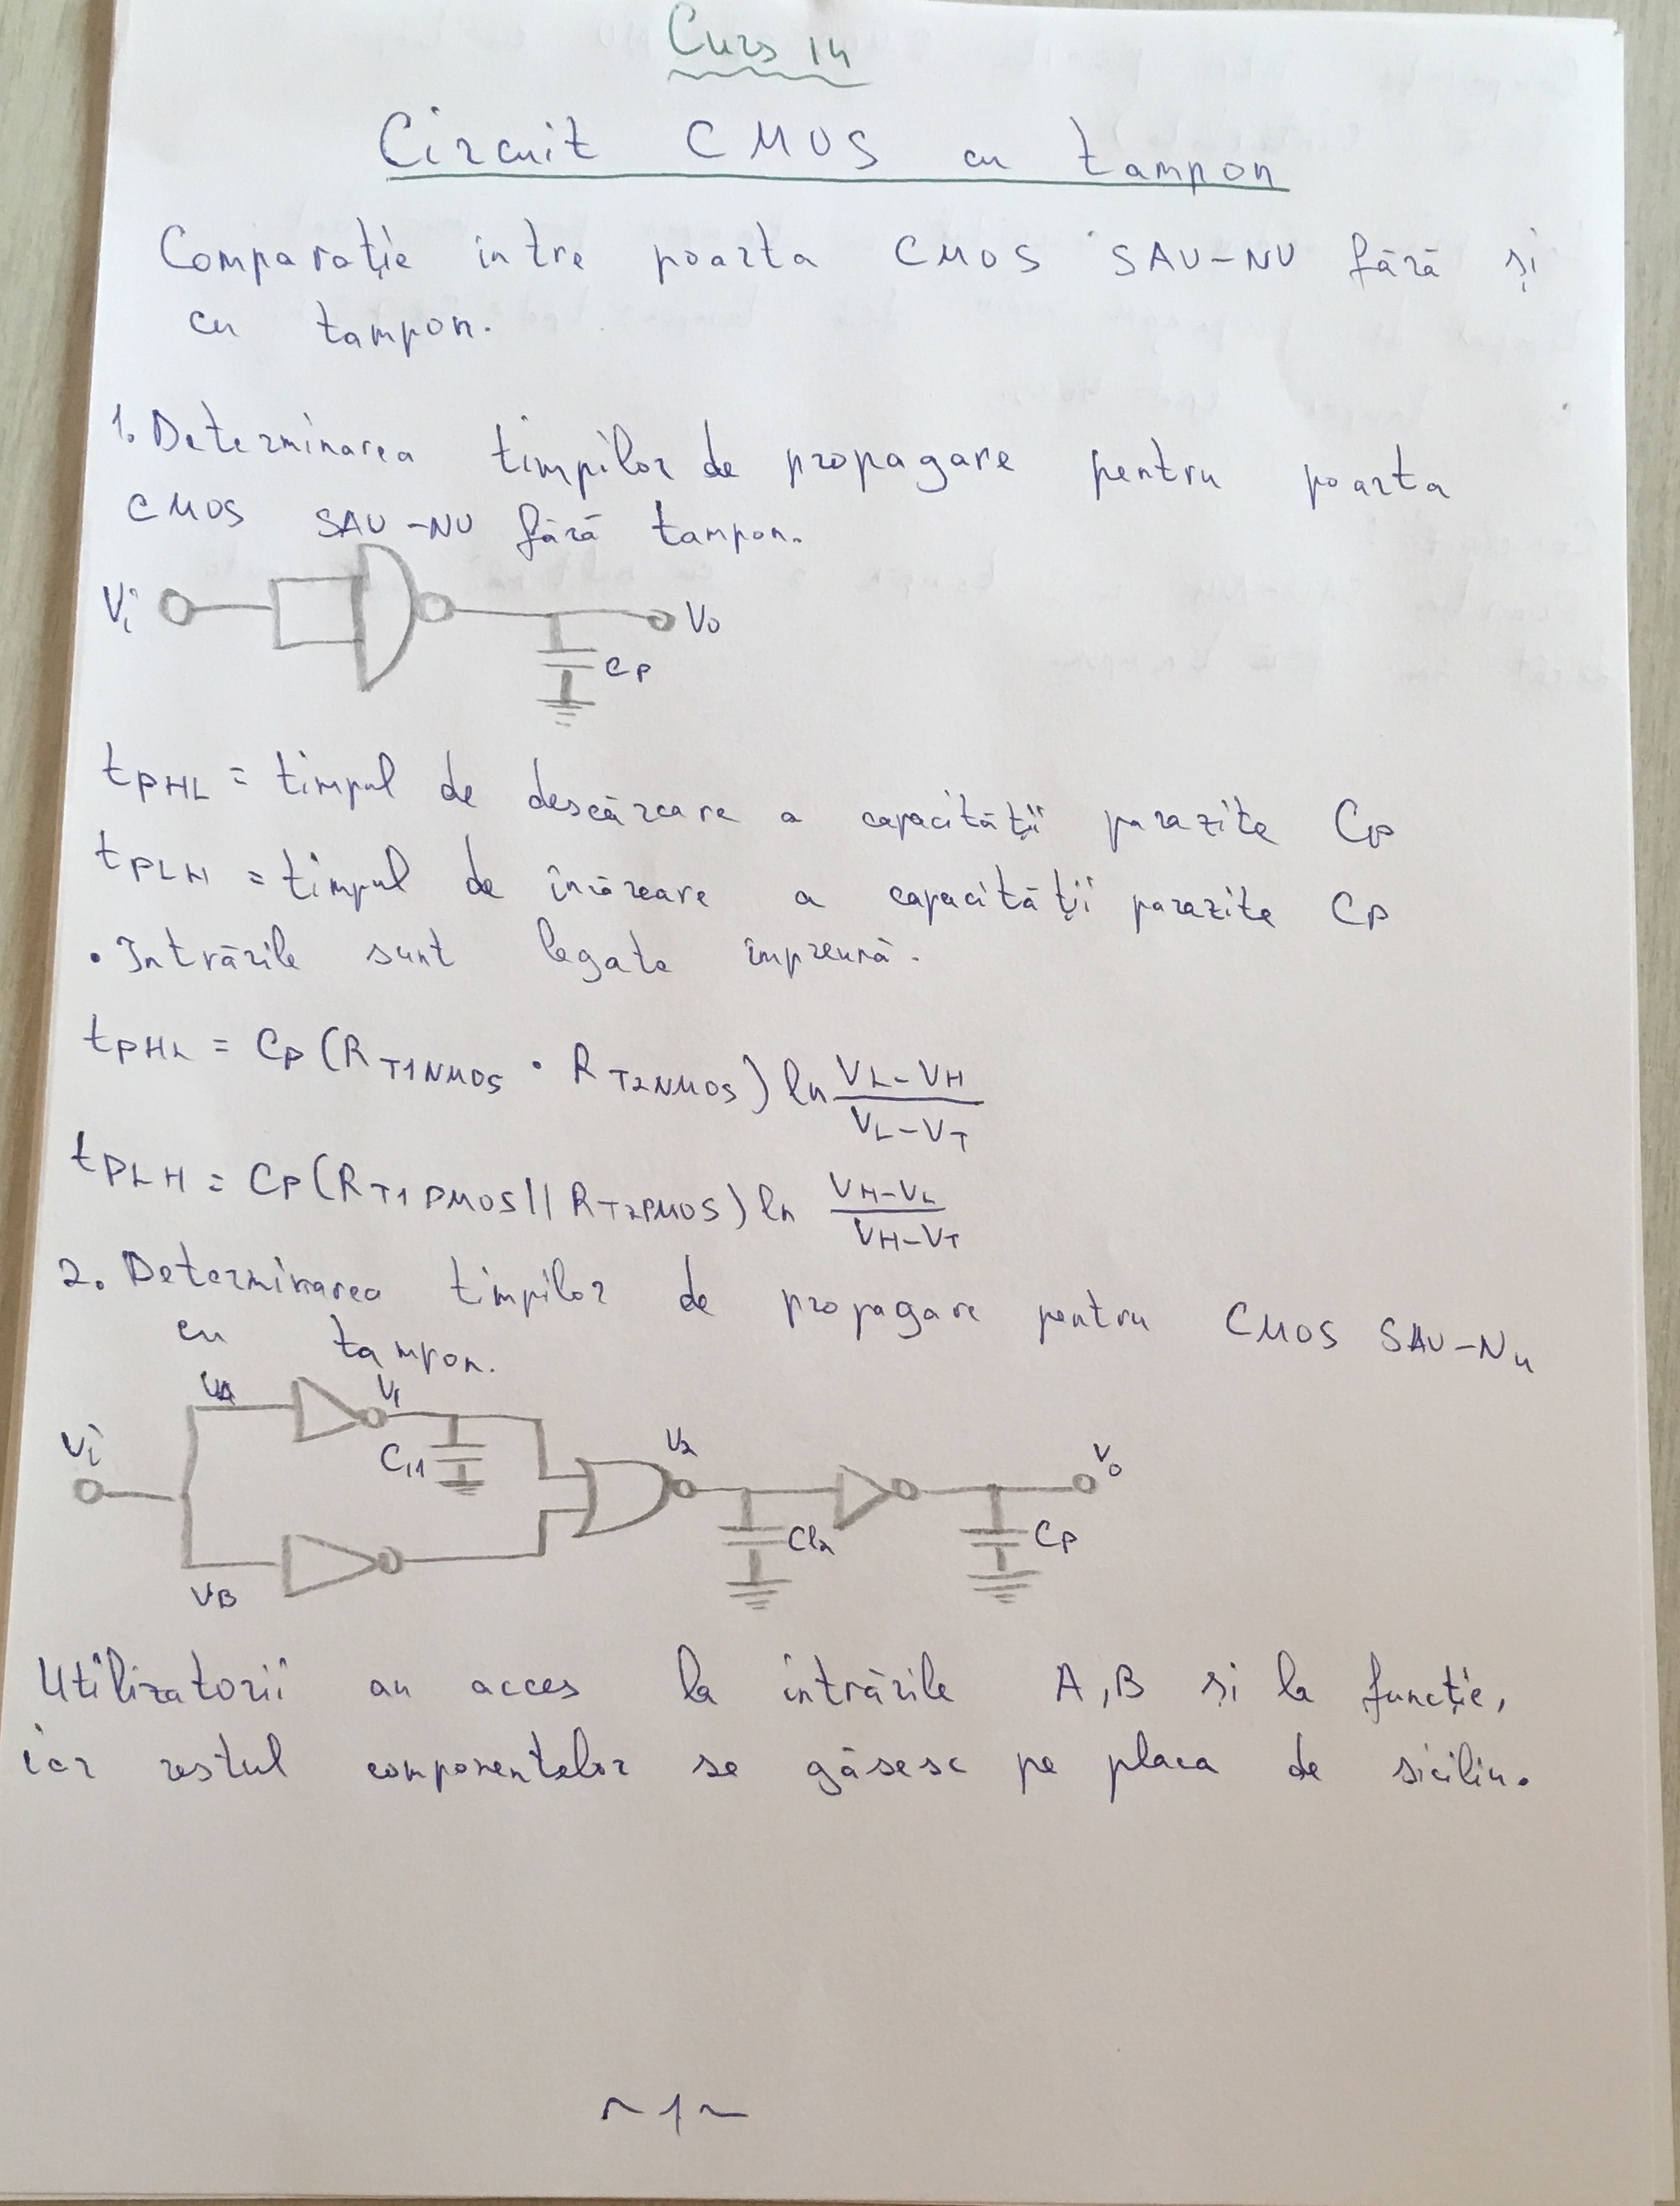 Curs 14
Circuit CMOS cu tampon
Comparație intre poarta CMOS SAU-NU fără și
cu tampon.
1. Determinarea timpilor de propagare pentru poarta
CMOS SAU-NU fără tampon.
Vi
V0
CP
tPHL = timpul de descărcare a capacității parazite CP
tPLH = timpul de încărcare a capacității parazite CP
• Intrările sunt legate împreună.
tPHL = CP (RT1NMOS · RT2NMOS) ln (VL-VH)/(VL-VT)
tPLH = CP (RT1PMOS || RT2PMOS) ln (VH-VL)/(VH-VT)
2. Determinarea timpilor de propagare pentru CMOS SAU-NU
cu tampon.
VA V1
Vi C11 V2 V0
Cl2 CP
VB
Utilizatorii au acces la intrările A, B și la funcție,
iar restul componentelor se găsesc pe placa de siciliu.
~1~